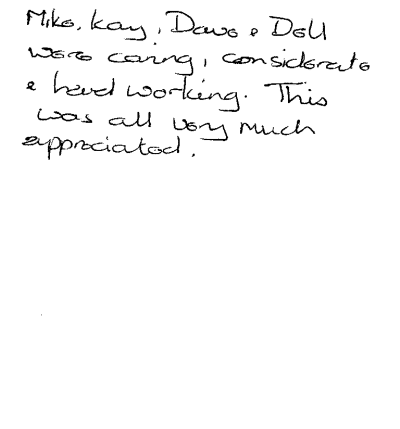 Mike, Kay, Dave & Dell
were caring, considerate
& hard working. This
was all very much
appreciated.